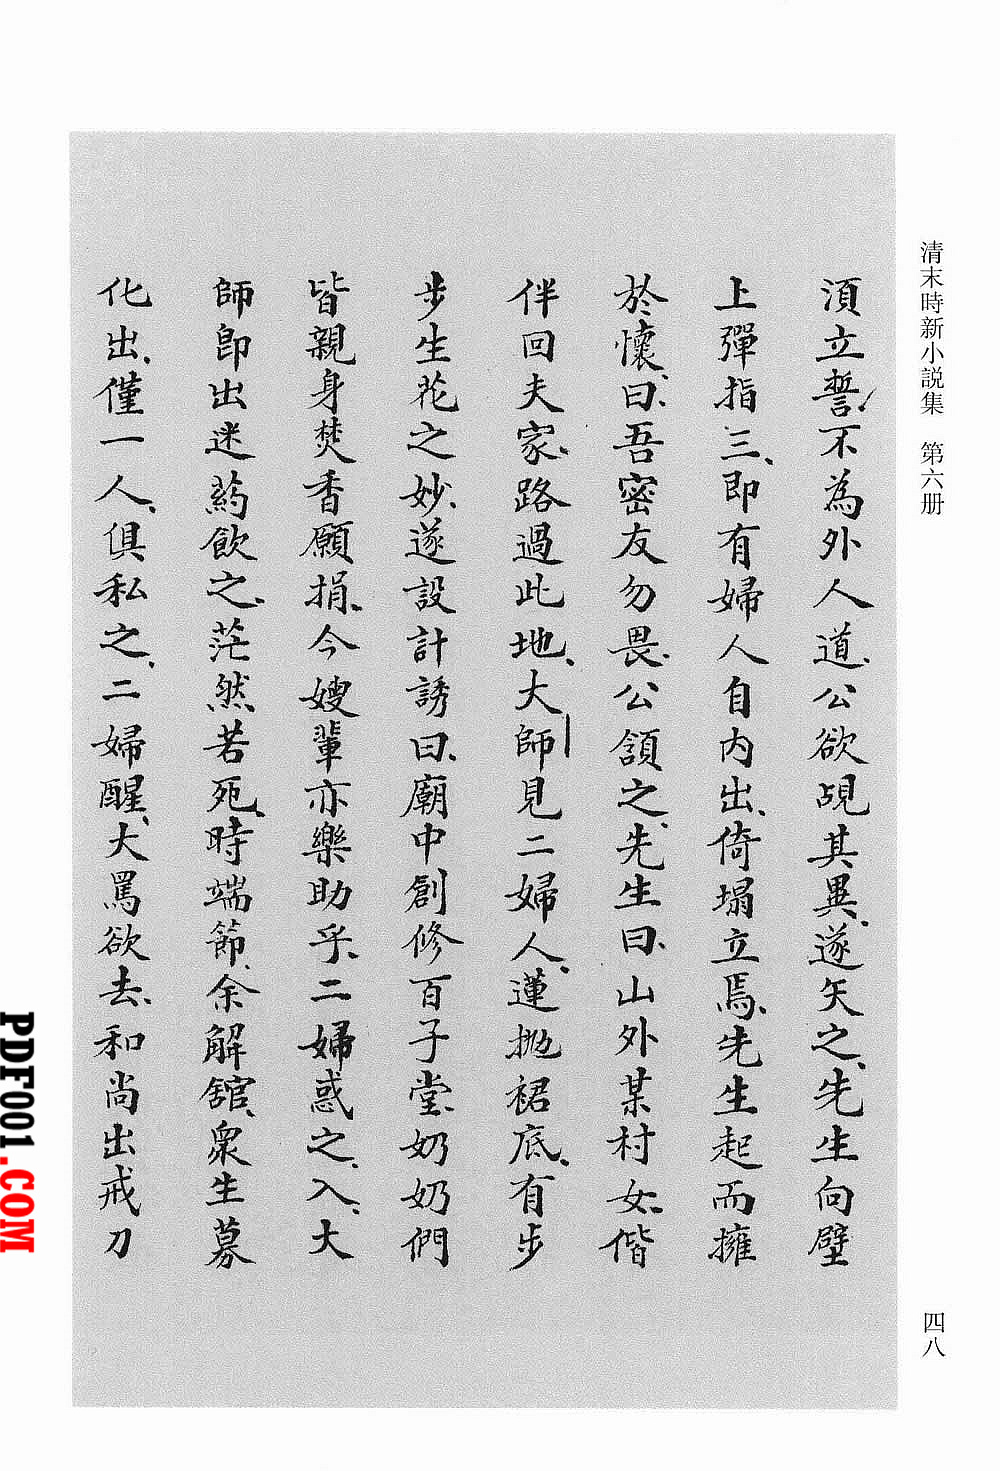 清末時新小説集 第六册
四八
湏立誓、不為外人道、公欲覘其異、遂矢之、先生向壁
上彈指三、即有婦人自内出、倚塌立焉、先生起而擁
於懷、曰、吾密友勿畏、公頷之、先生曰、山外某村女、偕
伴回夫家、路過此地、大師見二婦人、蓮拋裙底、有步
步生花之妙、遂設計誘曰、廟中創修百子堂、奶奶們
皆親身焚香願捐、今嫂輩亦樂助乎、二婦惑之、入、大
師卽出迷葯飲之、茫然若死、時端節、余解舘、衆生募
化出、僅一人、俱私之、二婦醒、大罵欲去、和尚出戒刀
PDF001.COM